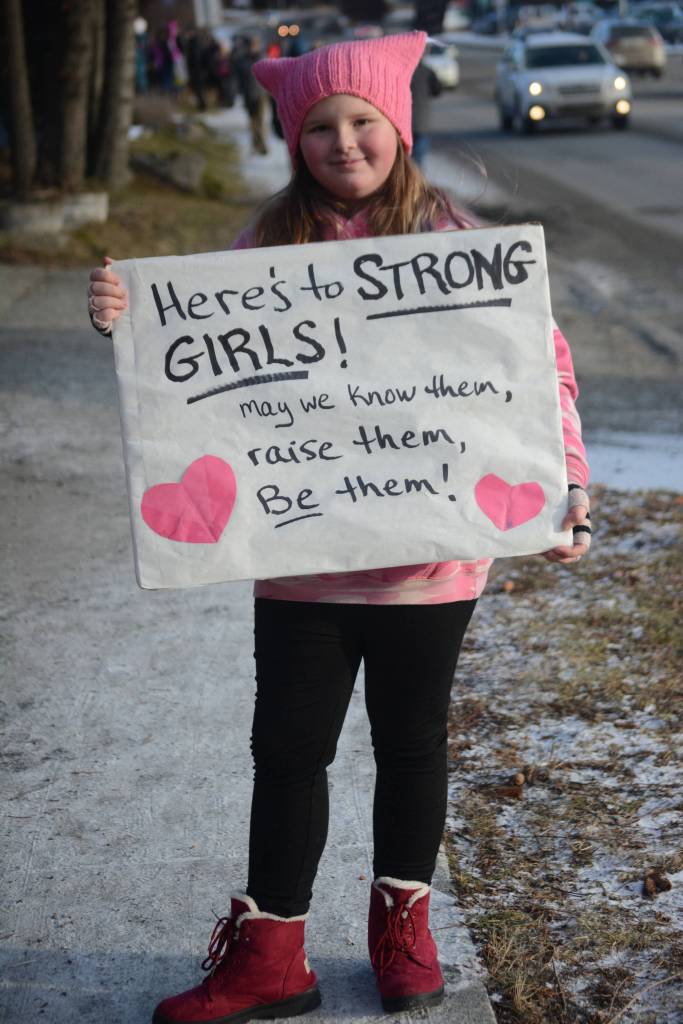 Here's to STRONG
GIRLS!
may we know them,
raise them,
Be them!